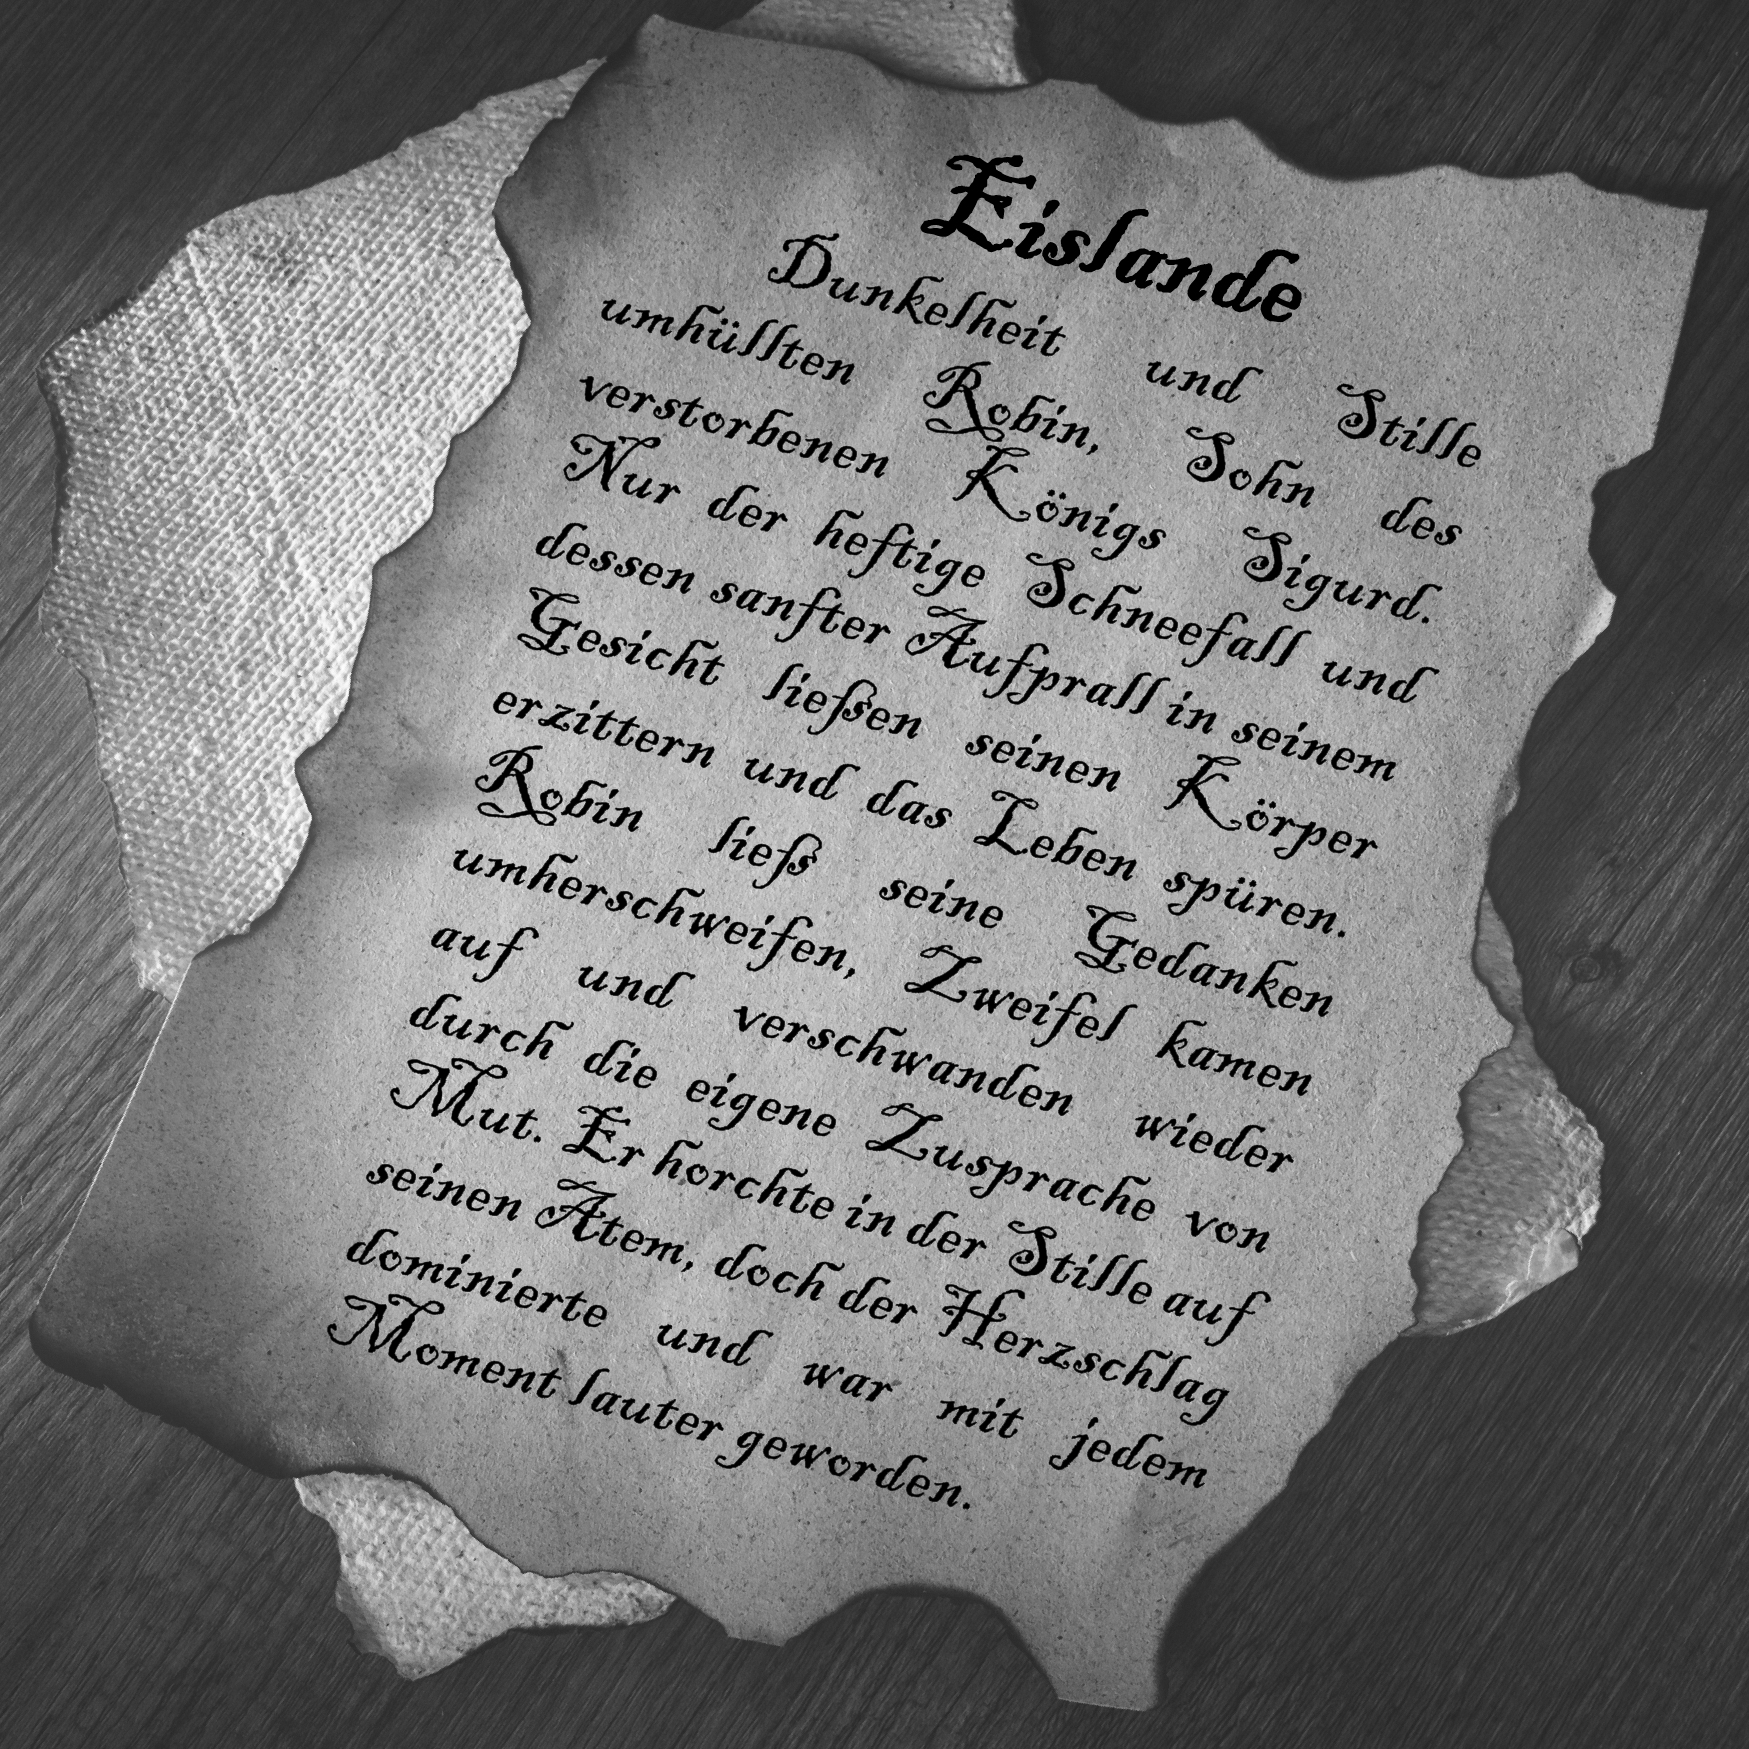 Eislande
Dunkelheit und Stille
umhüllten Robin, Sohn des
verstorbenen Königs Sigurd.
Nur der heftige Schneefall und
dessen sanfter Aufprall in seinem
Gesicht ließen seinen Körper
erzittern und das Leben spüren.
Robin ließ seine Gedanken
umherschweifen, Zweifel kamen
auf und verschwanden wieder
durch die eigene Zusprache von
Mut. Er horchte in der Stille auf
seinen Atem, doch der Herzschlag
dominierte und war mit jedem
Moment lauter geworden.